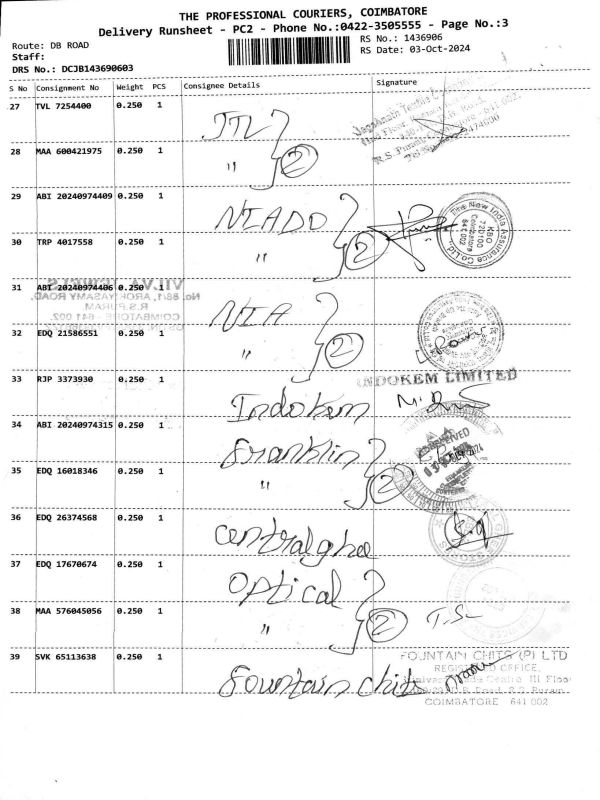 THE PROFESSIONAL COURIERS, COIMBATORE
Delivery Runsheet - PC2 - Phone No.:0422-3505555 - Page No.:3
Route: DB ROAD
RS No.: 1436906
Staff:
RS Date: 03-Oct-2024
DRS No.: DCJB143690603
S No Consignment No Weight PCS Consignee Details Signature
27 TVL 7254400 0.250 1 JTL
28 MAA 600421975 0.250 1 " 2
29 ABI 20240974409 0.250 1 NIADO
30 TRP 4017558 0.250 1 " 2
The New India Assurance Co. Ltd.
KBO
720100
Coimbatore
641 002
31 ABI 20240974406 0.250 1 NIA
No.88/1, AROKIYASAMY ROAD,
R.S.PURAM
COIMBATORE - 641 002.
32 EDQ 21586551 0.250 1 " 2
33 RJP 3373930 0.250 1 Indokem
INDOKEM LIMITED
34 ABI 20240974315 0.250 1 Franklin
RECEIVED
35 EDQ 16018346 0.250 1 " 2
36 EDQ 26374568 0.250 1 centralghee
37 EDQ 17670674 0.250 1 optical
38 MAA 576045056 0.250 1 " 2 T.S
39 SVK 65113638 0.250 1 fountain chits
FOUNTAIN CHITS (P) LTD
REGISTERED OFFICE,
COIMBATORE 641 002